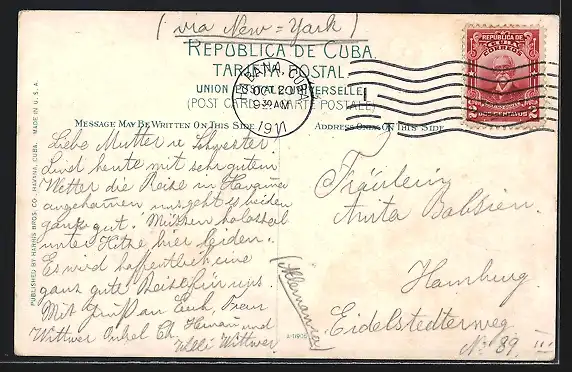 (via New=York)
REPÚBLICA DE CUBA.
TARJETA POSTAL
UNION POSTAL UNIVERSELLE
(POST CARD-CARTE POSTALE)
HABANA, CUBA
OCT 20
9 30 AM
1911
REPUBLICA DE
CUBA
CORREOS
2 DOS CENTAVOS 2
MESSAGE MAY BE WRITTEN ON THIS SIDE
ADDRESS ONLY ON THIS SIDE
Liebe Mutter u Schwester
Sind heute mit sehr gutem
Wetter die Reise in Havanna
angekommen uns geht es beiden
ganz gut. Müssen kolossal
unter Hitze hier leiden.
Es wird hoffentlich eine
ganz gute Reise für uns.
Mit Gruß an Euch, Frau
Wittwer Onkel Ed. Herman und
Willi Wittwer
Fräulein
Anita Bahsien.
Hamburg.
Eidelstedterweg
No. 89. III
(Alemania)
A-11905
PUBLISHED BY HARRIS BROS. CO.-HAVANA, CUBA. MADE IN U. S. A.